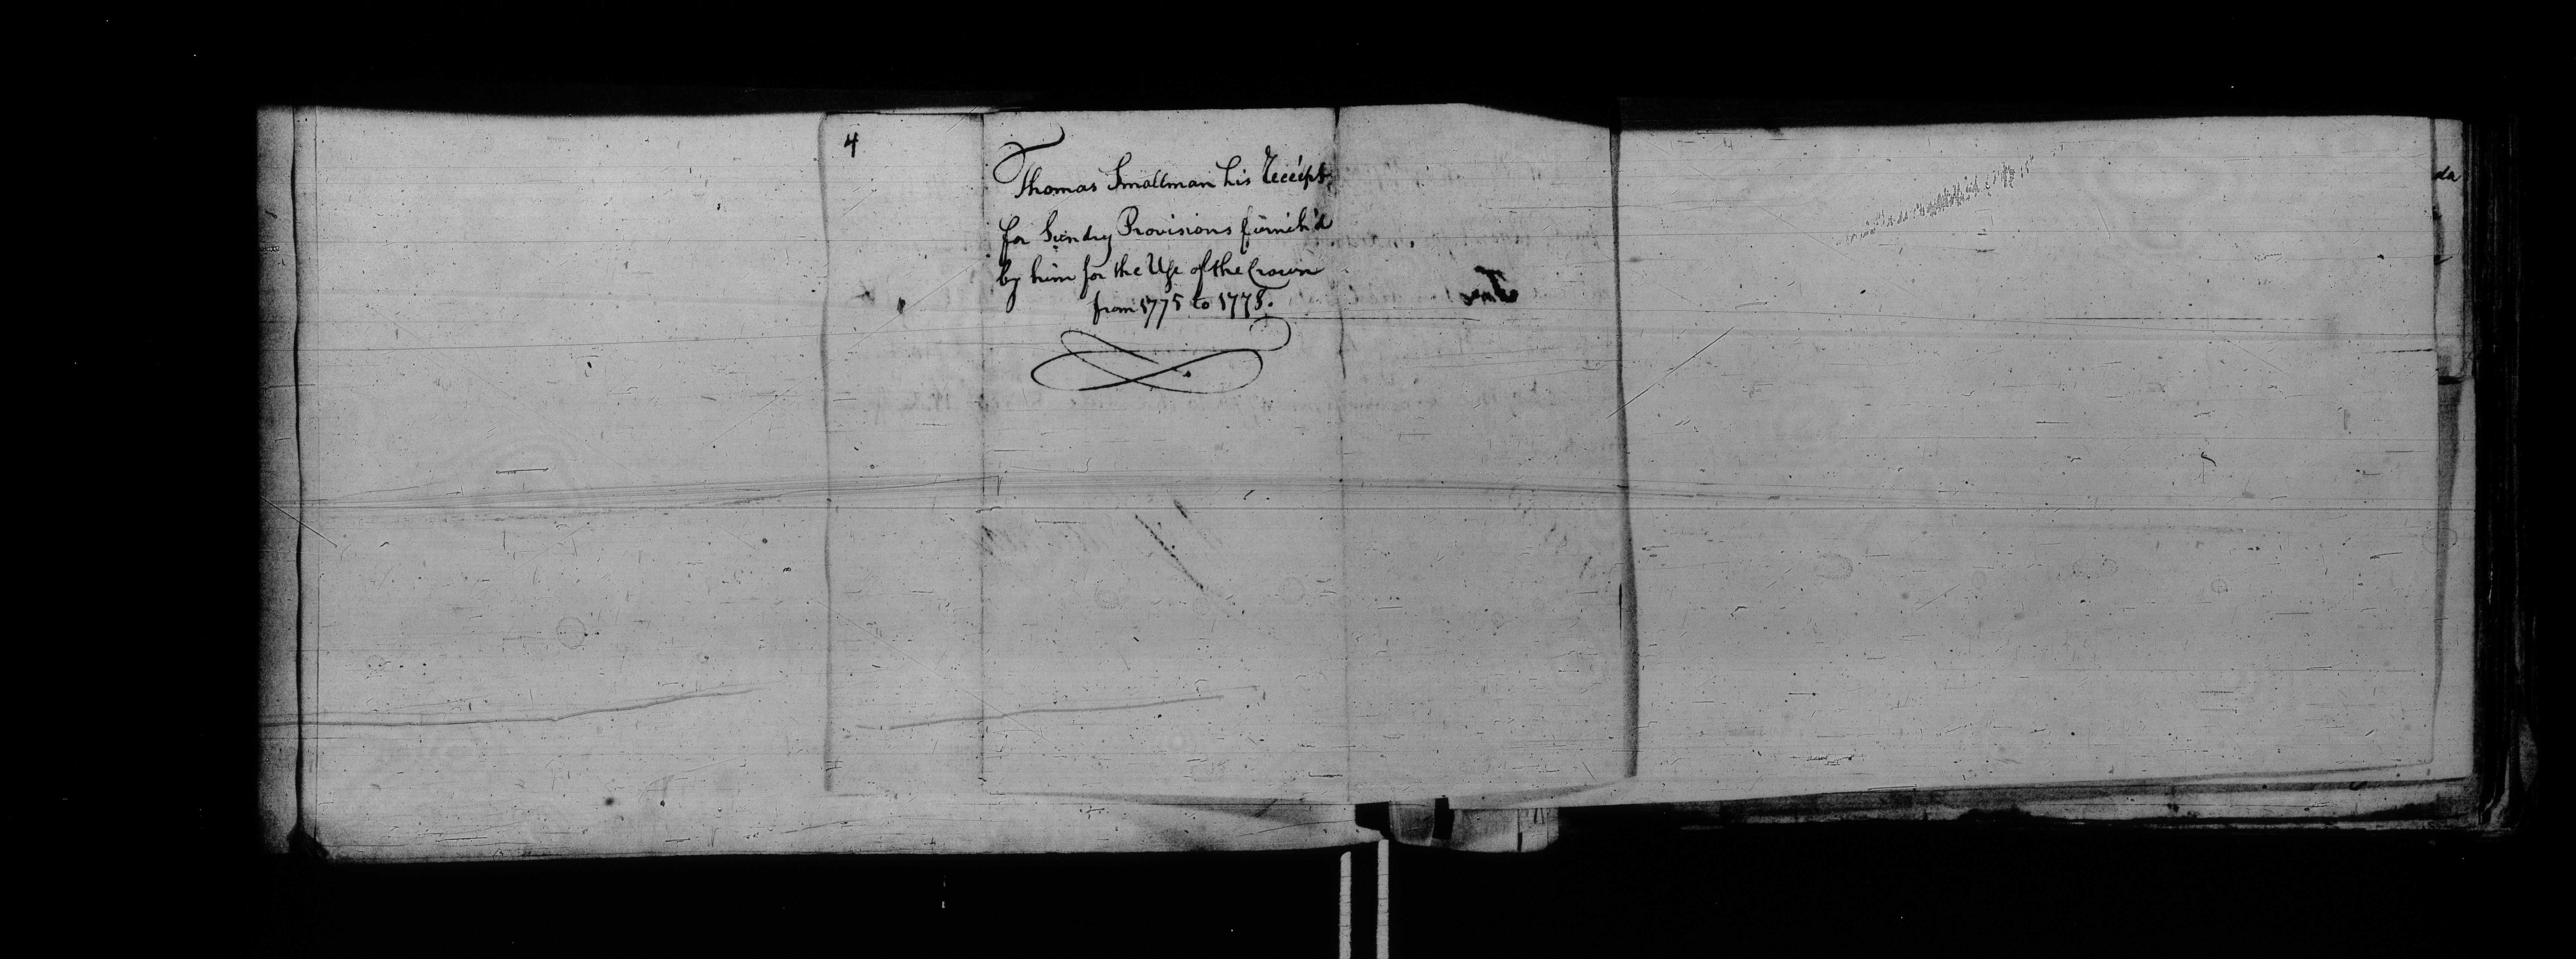 4
Thomas Smallman his Receipt
for Sundry Provisions furnish'd
by him for the Use of the Crown
from 1775 to 1778.